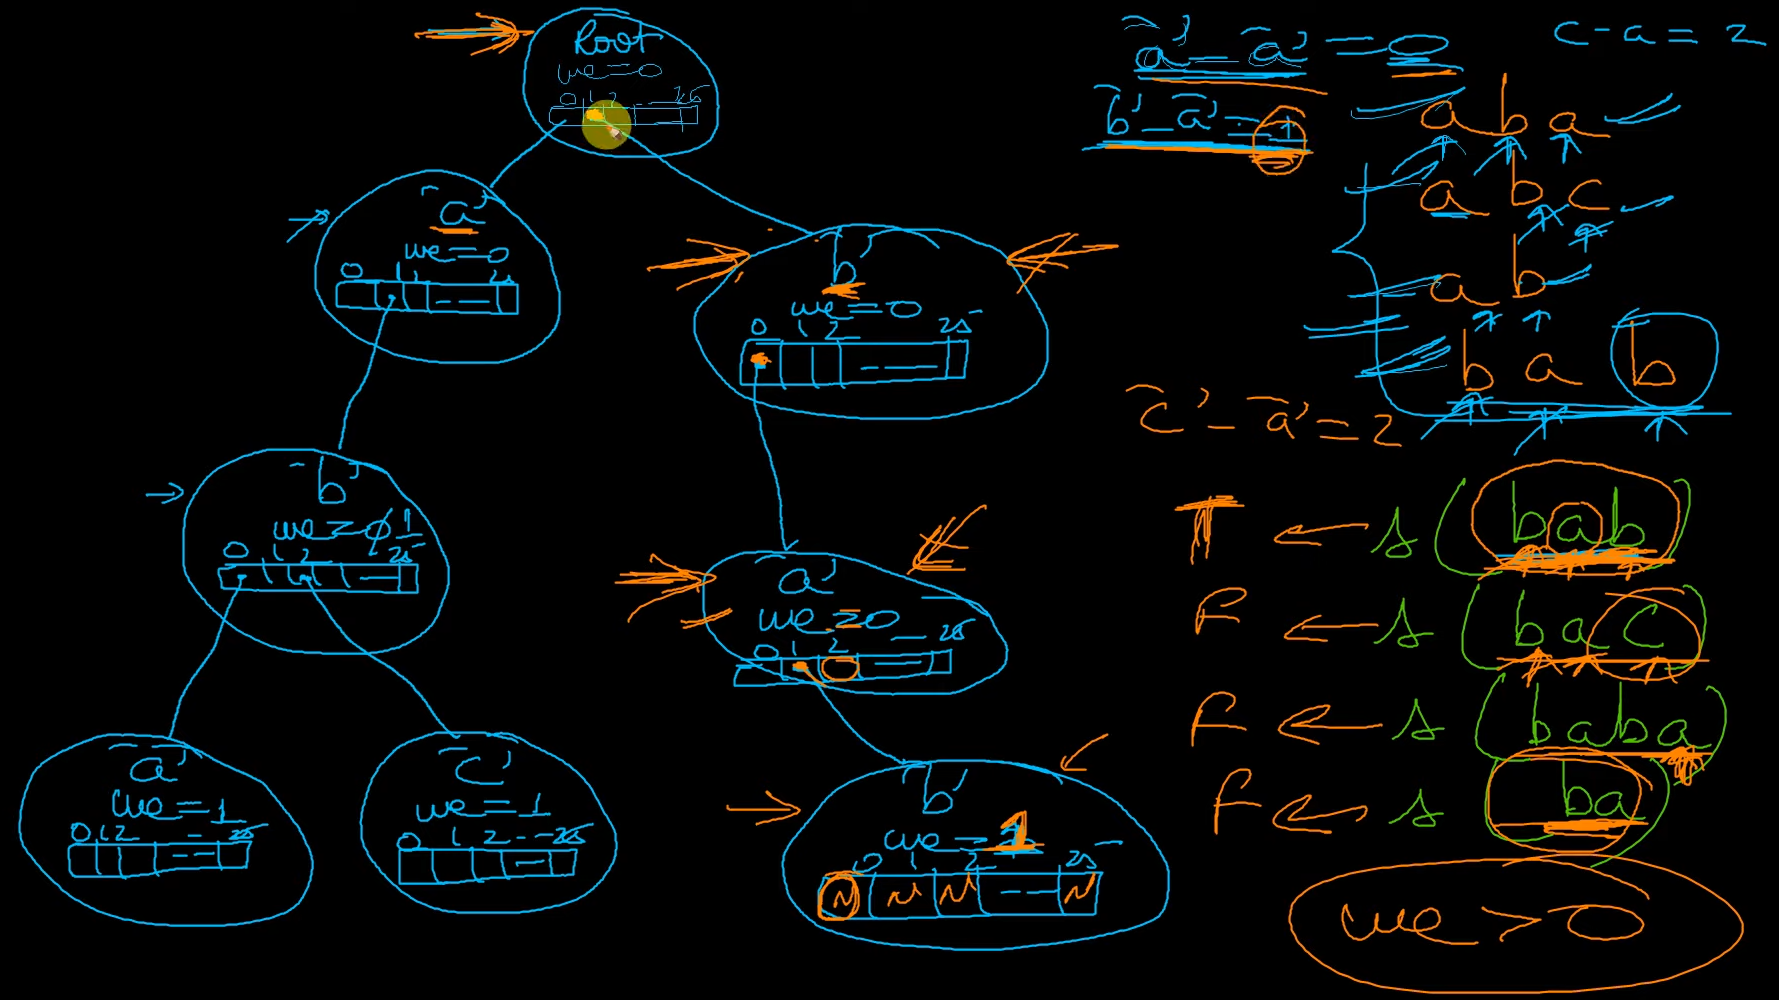 Root
we=0
0 1 2 25
'a'
we=0
0 1 25
'b'
we=0
0 1 2 25
'b'
we=0 1
0 1 2 25
'a'
we=0
0 1 2 25
'a'
we=1
0 1 2 25
'c'
we=1
0 1 2 25
'b'
we=1
0 1 2 25
N N N N
'a'-'a'=0
'b'-'a'=1
c-a=2
aba
abc
ab
bab
'c'-'a'=2
T ← s (bab)
F ← s (bac)
F ← s (baba)
F ← s (ba)
we>0